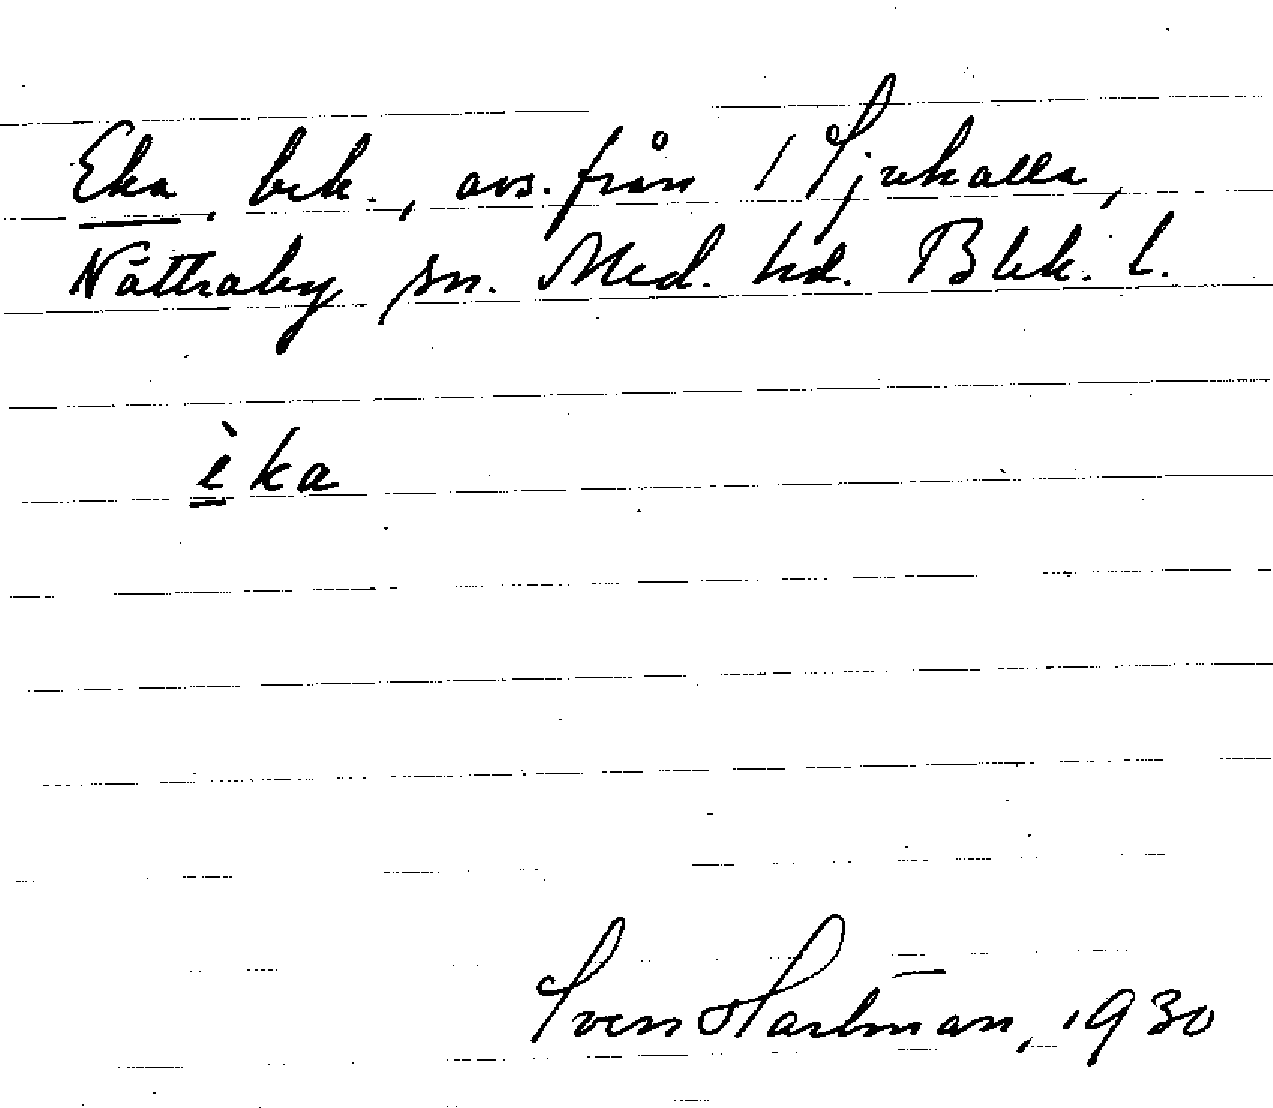 Eka, bek., avs. från 1 Sjuhalla,
Nättraby sn. Med. hd. Blek. l.
èka
Sven Hartman, 1930